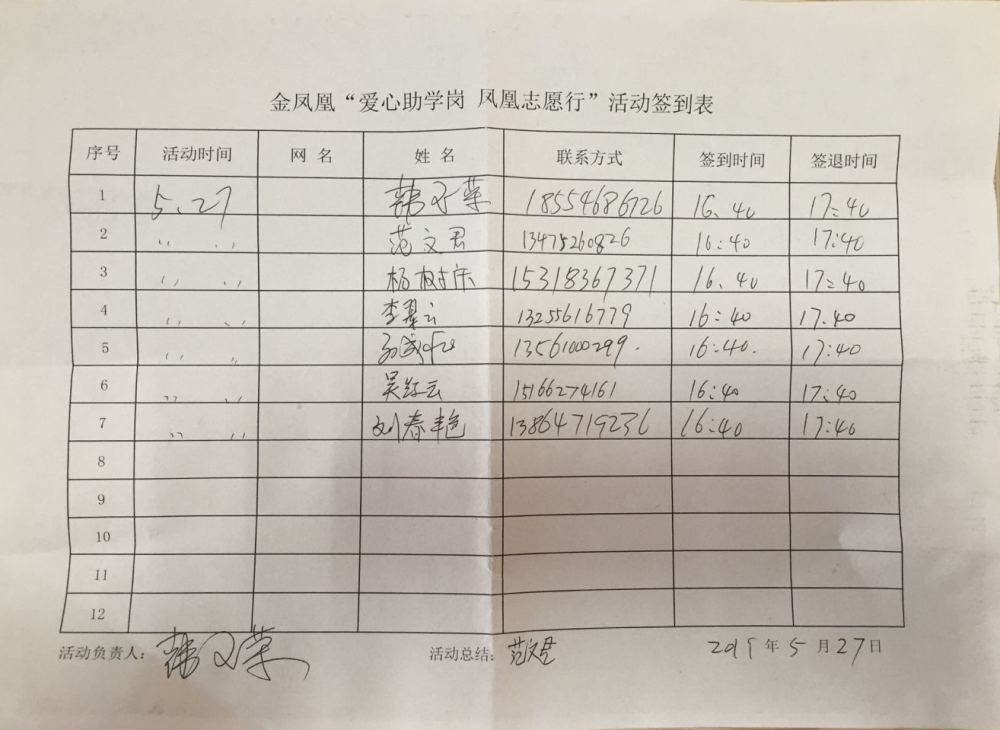 金凤凰“爱心助学岗 凤凰志愿行”活动签到表
序号 活动时间 网名 姓名 联系方式 签到时间 签退时间
1 5、27 韩子荣 18554686726 16、40 17:40
2 〃 〃 范文君 13475260826 16:40 17:40
3 〃 〃 杨树庆 15318367371 16、40 17:40
4 〃 〃 李翠云 13255616779 16:40 17.40
5 〃 〃 13561000299. 16:40. 17:40
6 〃 〃 吴红云 15166274161 16:40 17:40
7 〃 〃 刘春艳 13864719236 16:40 17:40
8
9
10
11
12
活动负责人: 韩子荣 活动总结: 范文君 2019年5月27日